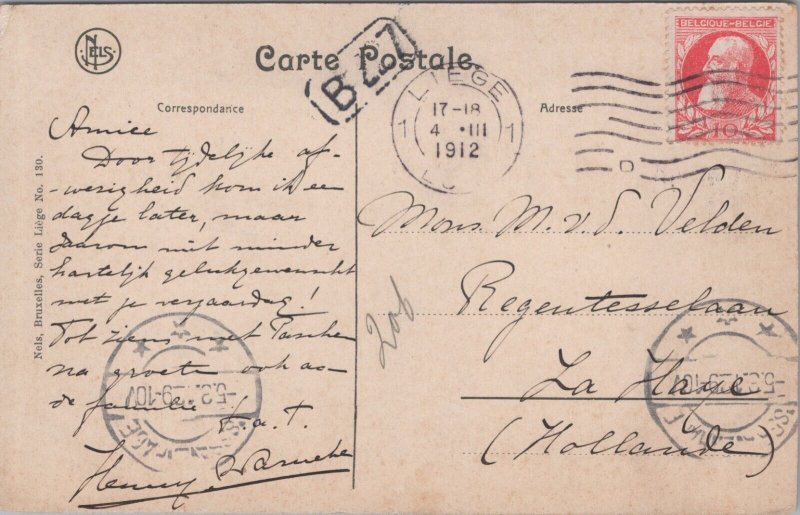 NELS.
Carte Postale.
B 27
LIÉGE
17-18
4 · III
1912
1 1
BELGIQUE-BELGIË
10
D
Correspondance
Adresse
Nels, Bruxelles, Serie Liége No. 130.
Amice
Door tijdelijke af-
wezigheid kom ik een
dagje later, maar
daarom niet minder
hartelijk gelukgewenscht
met je verjaardag!
Tot ziens met Paschen
na groeten ook as-
de familie t.a.t.
Henny
Mons. M. v. d. Velden
Regentesselaan
La Haye
(Hollande)
206
-5.3.12 9-10V
-5.3.12 9-10V